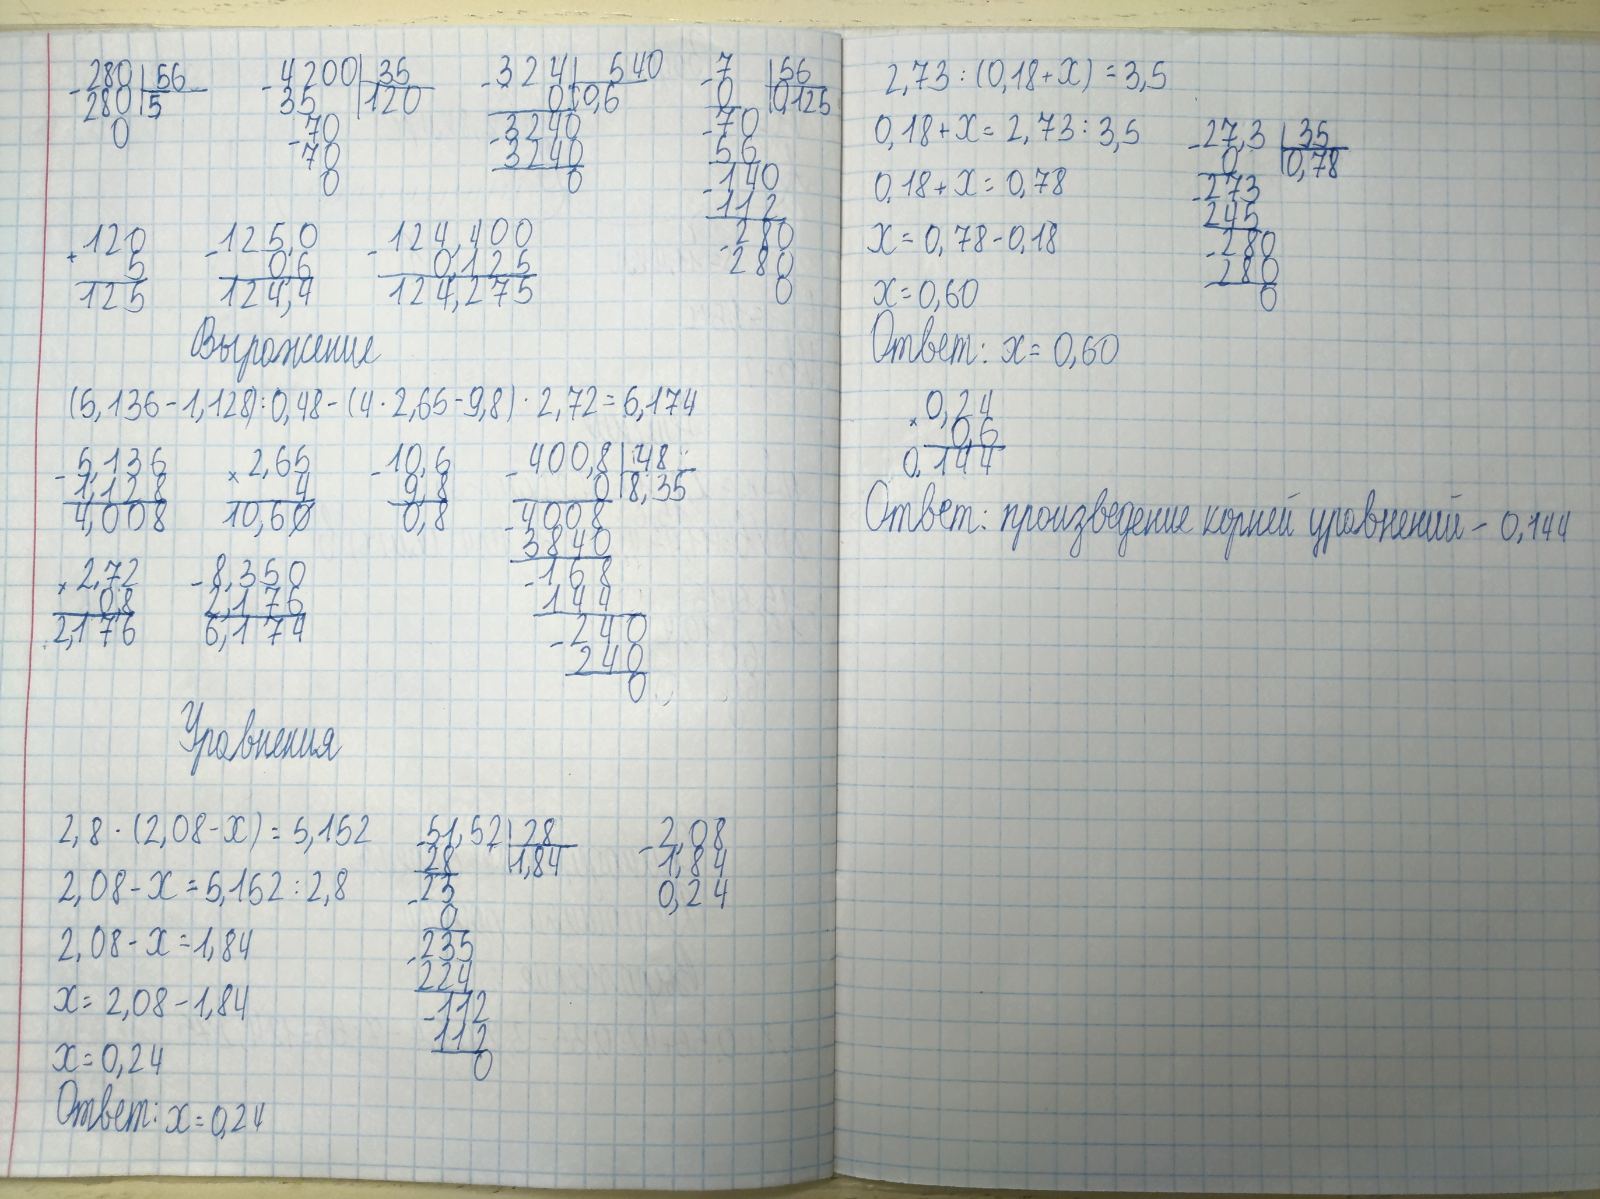 -280|56 -4200|35 -324|540 -7|56
280|5 35 |120 0|0,6 0 |0,125
0 -70 -3240 -70
70 3240 56
0 0 -140
112
+120 -125,0 -124,400 -280
5 0,6 0,125 280
125 124,4 124,275 0
Выражение
(5,136-1,128):0,48-(4·2,65-9,8)·2,72=6,174
-5,136 ×2,65 -10,6 -400,8|48
1,128 4 9,8 0|8,35
4,008 10,60 0,8 -4008
3840
×2,72 -8,350 -1,68
0,8 2,176 144
2,176 6,174 -240
240
0
Уравнения
2,8·(2,08-х)=5,152 -51,52|28 -2,08
28 |1,84 1,84
2,08-х=5,152:2,8 -23 0,24
0
2,08-х=1,84 -235
224
х=2,08-1,84 -112
112
х=0,24 0
Ответ: х=0,24
2,73:(0,18+х)=3,5
0,18+х=2,73:3,5 -27,3|35
0 |0,78
0,18+х=0,78 -273
245
х=0,78-0,18 -280
280
х=0,60 0
Ответ: х=0,60
×0,24
0,6
0,144
Ответ: произведение корней уравнений - 0,144